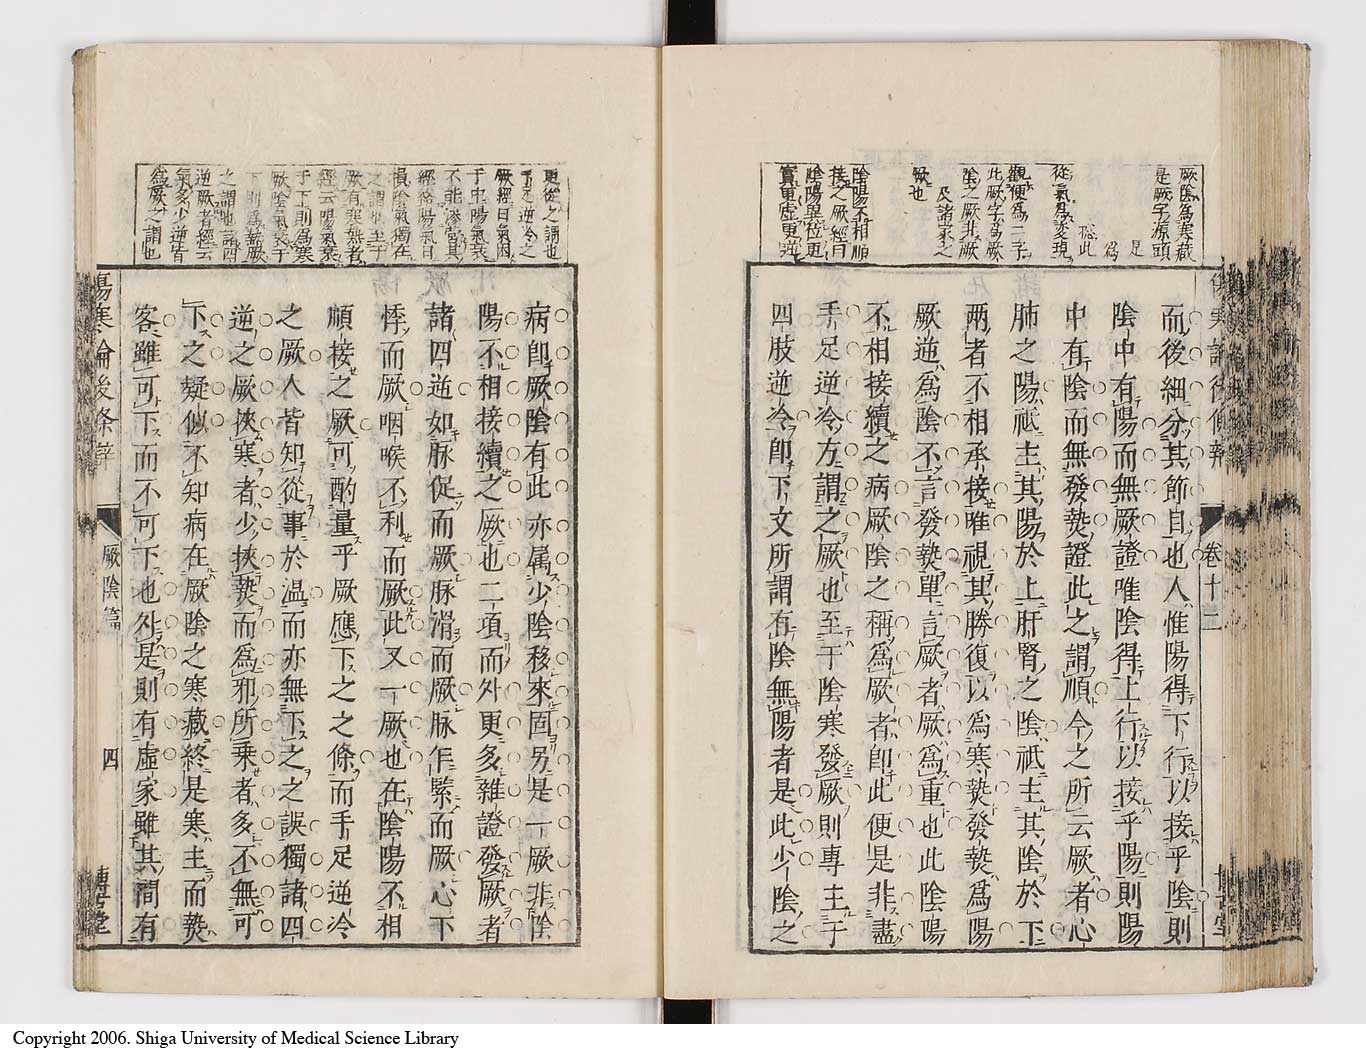 厥陰為寒藏
是厥字源頭
從氣為変現
觀便為二字
此厥字為厥
陰之厥非厥
及諸家之
厥也
陰陽不相順
接之厥經百
陰陽異位更
實更虛更逆
而後細分其節目也人惟陽得下行以接乎陰則
陰中有陽而無厥證唯陰得上行以接乎陽則陽
中有陰而無發𤍠證此之謂順今之所云厥者心
肺之陽祗主其陽於上肝腎之陰祗主其陰於下
兩者不相承接唯視其勝復以為寒𤍠發𤍠為陽
厥逆為陰不言發𤍠單言厥者厥為重也此陰陽
不相接續之病厥陰之稱為厥者即此便是非盡
手足逆冷方謂之厥也至于陰寒發厥則專主于
四肢逆冷即下文所謂有陰無陽者是此少陰之
卷十二
更從之謂也
手足逆冷之
厥經曰氣因
于中陽氣衰
不能滲營其
經絡陽氣日
損陰氣獨在
之謂也至于
厥有寒𤍠者
經云陽氣衰
于下則為寒
厥陰氣衰于
下則為𤍠厥
之謂也諸四
逆厥者經云
氣多少逆皆
為厥之謂也
病即厥陰有此亦属少陰移來固另是一厥非陰
陽不相接續之厥也二項而外更多雜證發厥者
諸四逆如脉促而厥脉滑而厥脉乍緊而厥心下
悸而厥咽喉不利而厥此又一厥也在陰陽不相
順接之厥可酌量乎厥應下之之條而手足逆冷
之厥人皆知從事於温而亦無下之之誤獨諸四
逆之厥挾寒者少挾𤍠而為邪所乗者多不無可
下之疑似不知病在厥陰之寒藏終是寒主而𤍠
客雖可下而不可下也外是則有虛家雖其間有
傷寒論後条辨
厥陰篇
四
Copyright 2006. Shiga University of Medical Science Library